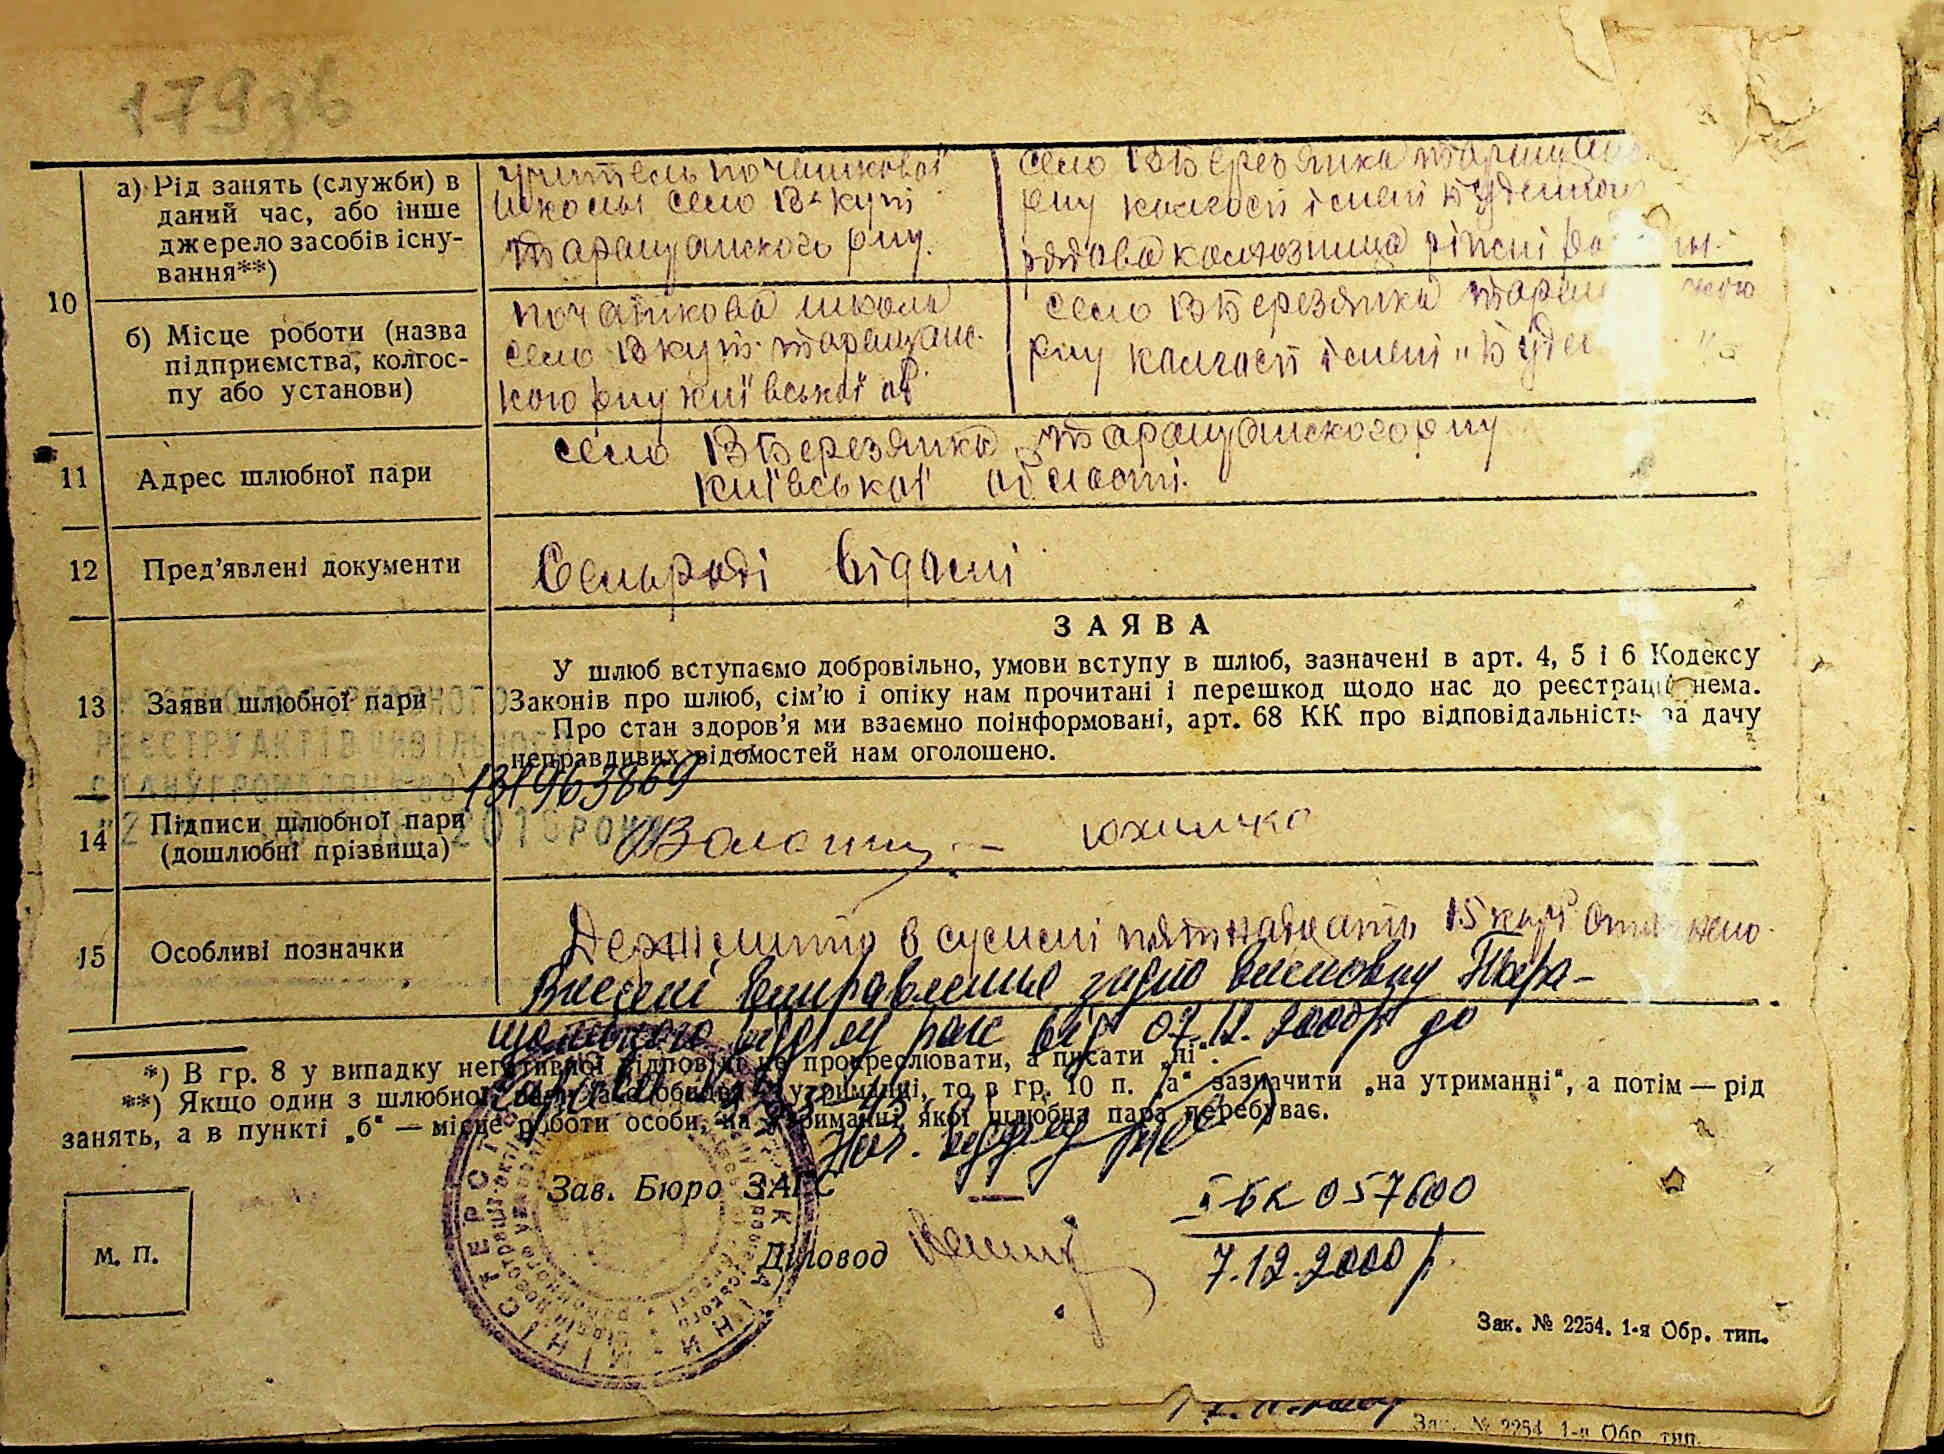 179зв
10
а) Рід занять (служби) в
даний час, або інше
джерело засобів існу-
вання**)
учитель початковоі
школы село В кути
таращанского рну.
село ВБерезянка таращанс
рну колгосп імені Буденного
рядова колгозница рілєні
б) Місце роботи (назва
підприємства, колгос-
пу або установи)
початкова школа
село Вкути таращанс-
кого рну київської об
село ВБерезянка таращ кого
рну колгосп імені "Буден "
11
Адрес шлюбної пари
село ВБерезянка таращанского рну
київської області.
12
Пред'явлені документи
Сельраді видані
13
Заяви шлюбної пари
ЗАЯВА
У шлюб вступаємо добровільно, умови вступу в шлюб, зазначені в арт. 4, 5 і 6 Кодексу
Законів про шлюб, сім'ю і опіку нам прочитані і перешкод щодо нас до реєстрації нема.
Про стан здоров'я ми взаємно поінформовані, арт. 68 КК про відповідальність за дачу
неправдивих відомостей нам оголошено.
РЕЄСТРУ АКТІВ ЦИВІЛЬНОГО
СТАНУ ГРОМАДЯН
2016 РОКУ
131963869
14
Підписи шлюбної пари
(дошлюбні прізвища)
Волощ
юхимчко
15
Особливі позначки
Держмито в сумені пятнадцать 15 кар оплачено.
Внесені виправлення згідно висновку Тара-
щанського відділу рагс від 07.12.2000р до
*) В гр. 8 у випадку негативної відповіді не прокреслювати, а писати „ні".
**) Якщо один з шлюбної пари або обидва на утриманні, то в гр. 10 п. „а" зазначити „на утриманні", а потім — рід
занять, а в пункті „б" — місце роботи особи, на утриманні якої шлюбна пара перебуває.
Нач. відділу
Зав. Бюро ЗАГС
Діловод
І-БК 057600
7.12.2000р.
М. П.
Зак. № 2254. 1-я Обр. тип.
Зак. № 2254 1-я Обр. тип.